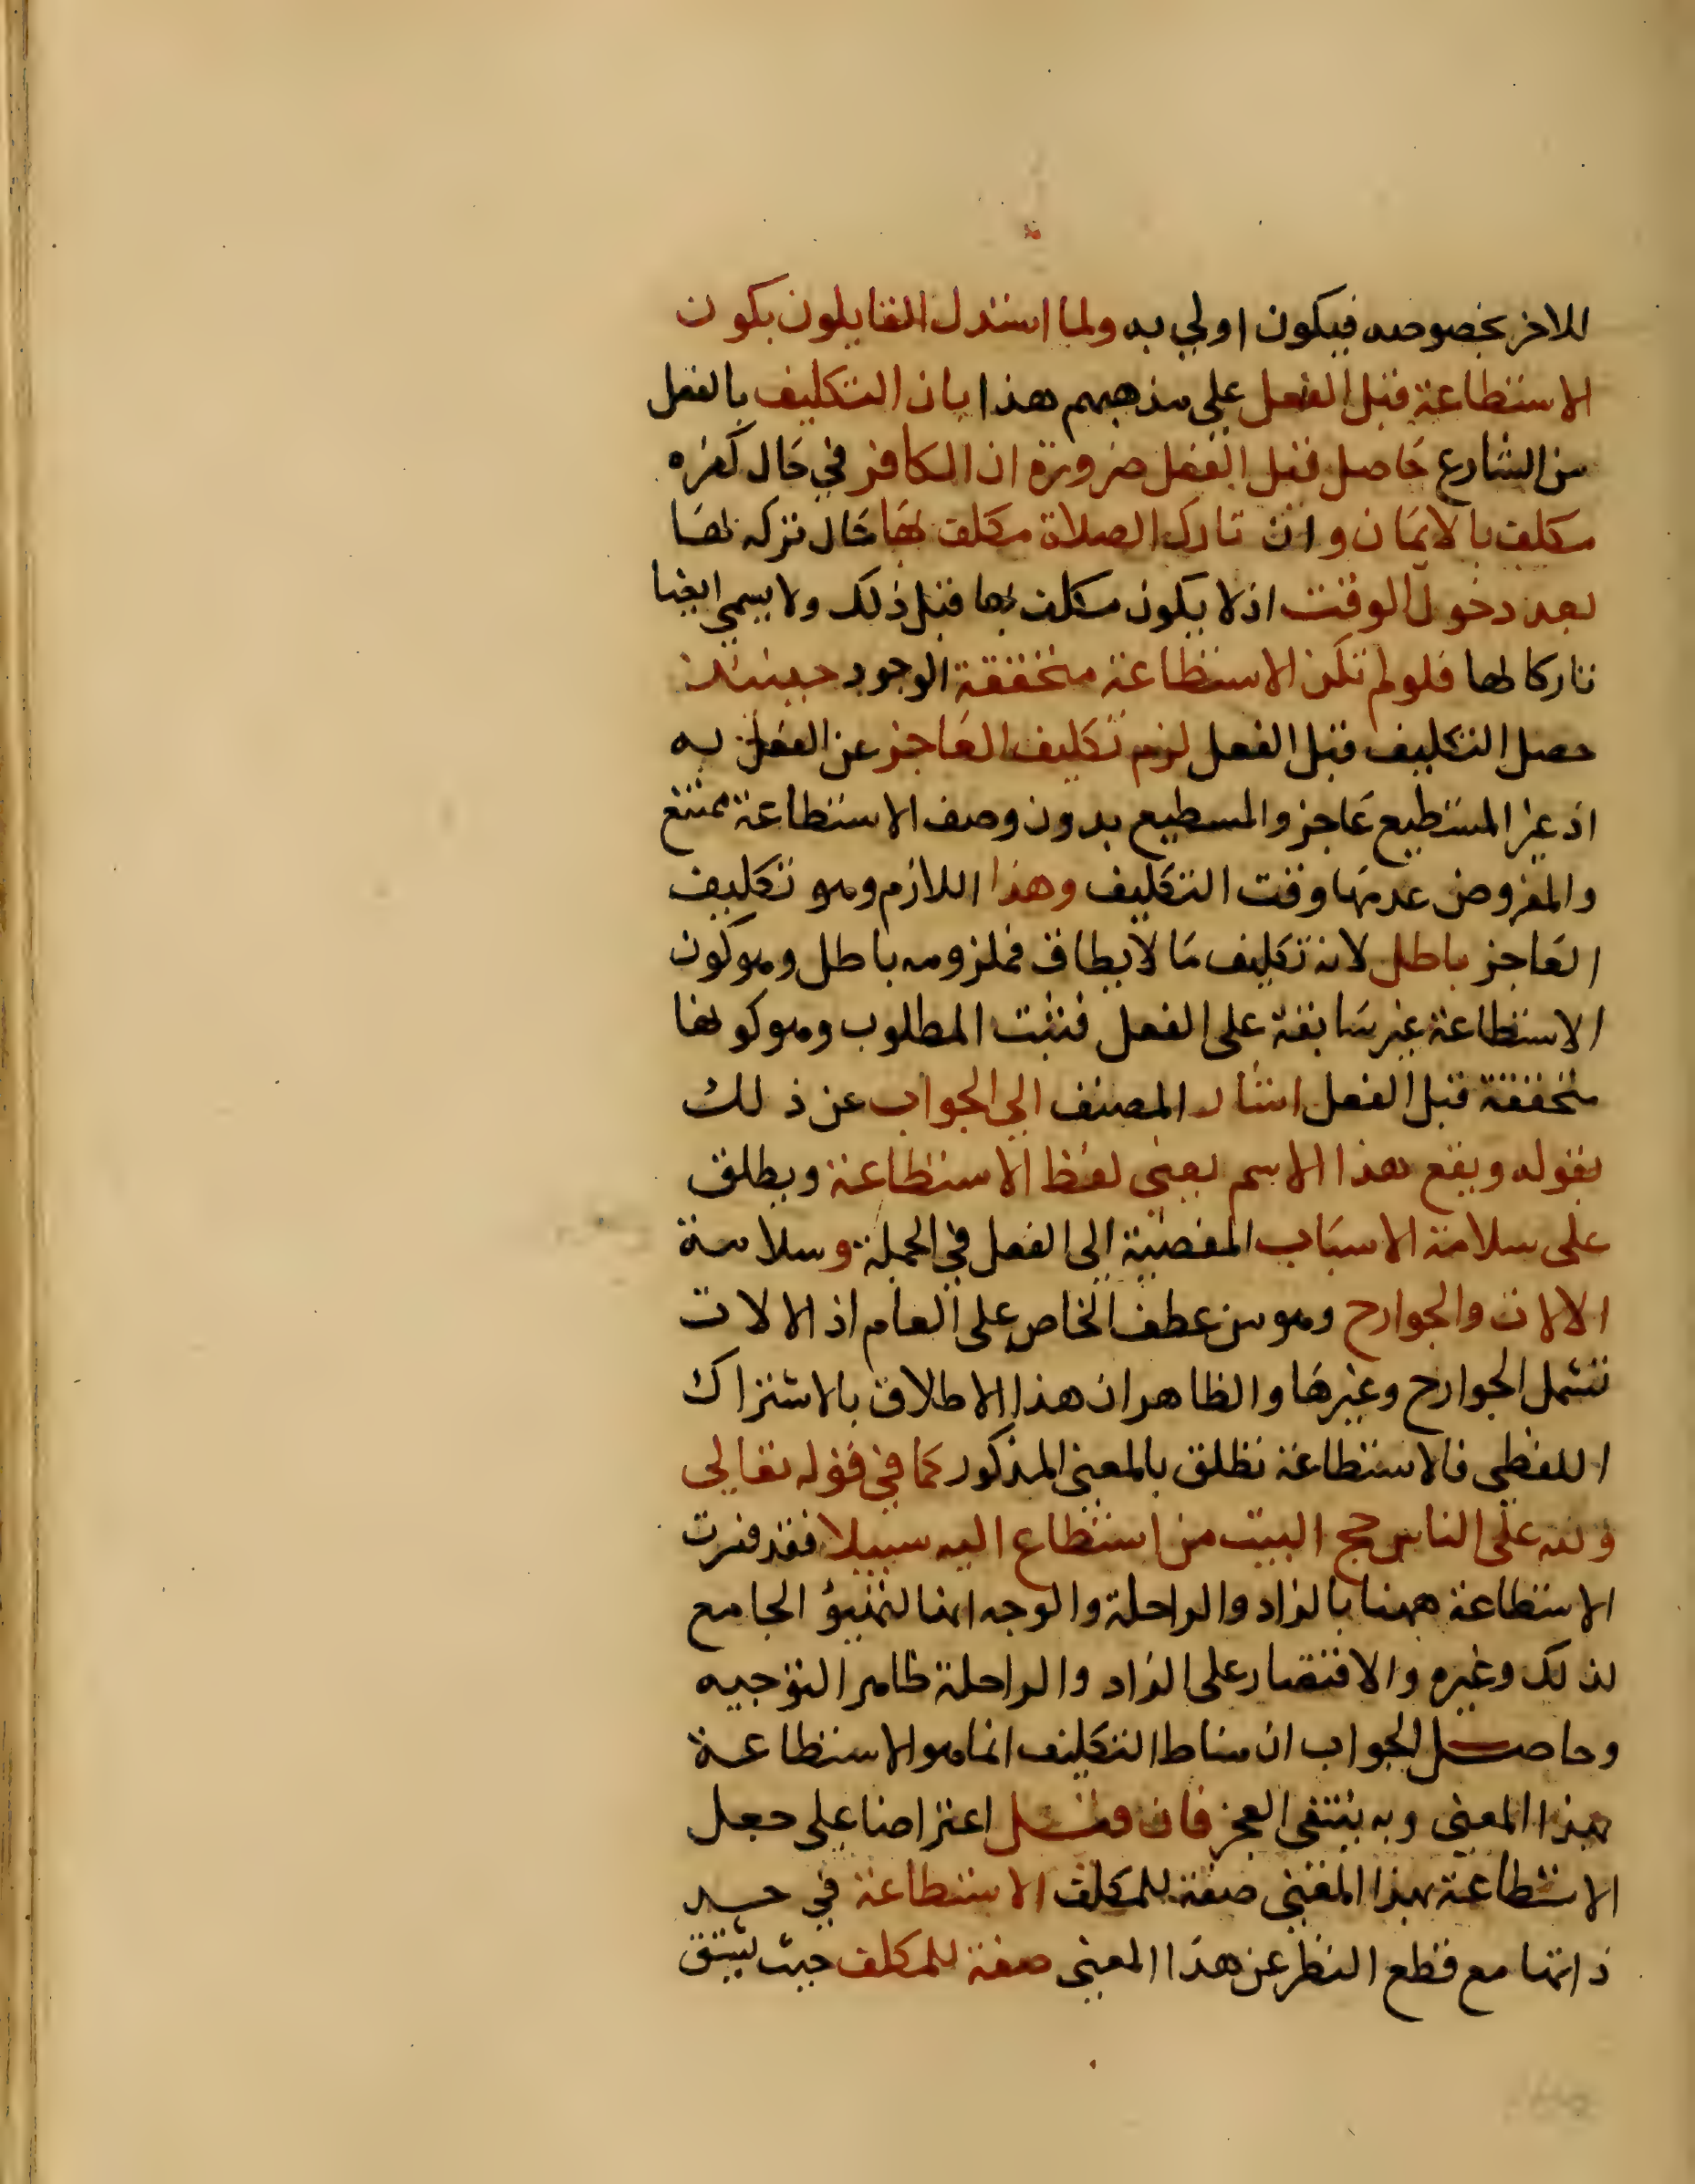 للاخر بخصوصه فيكون اولي به ولما استدل القايلون بكون
الاستطاعة قبل الفعل علي مذهبهم هذا بان التكليف بالفعل
من الشارع حاصل قبل الفعل ضرورة ان الكافر في حال كفره
مكلف بالايمان وان تارك الصلاة مكلف بها حال تركه لها
بعد دخول الوقت اذ لا يكون مكلف بها قبل ذلك ولا يسمي ايضا
تاركا لها فلو لم تكن الاستطاعة متحققة الوجود حينئذ
حصل التكليف قبل الفعل لزم تكليف العاجز عن الفعل به
اذ غير المستطيع عاجز والمسطيع بدون وصف الاستطاعة ممتنع
والمفروض عدمها وقت التكليف وهذا اللازم وهو تكليف
العاجز باطل لانه تكليف ما لا يطاق فملزومه باطل وهو كون
الاستطاعة غير سابقة على الفعل فثبت المطلوب وهو كونها
متحققة قبل الفعل اشار المصنف الي الجواب عن ذلك
بقوله ويقع هذا الاسم يعني لفظ الاستطاعة ويطلق
على سلامة الاسباب المفضية الى الفعل في الجملة وسلامة
الالات والجوارح وهو من عطف الخاص على العام اذ الالات
تشمل الجوارح وغيرها والظاهر ان هذا الاطلاق بالاشتراك
اللفظي فالاستطاعة تطلق بالمعنى المذكور كما في قوله تعالي
ولله على الناس حج البيت من استطاع اليه سبيلا فقد فسرت
الاستطاعة ههنا بالزاد والراحلة والوجه انها التهيؤ الجامع
لذلك وغيره والاقتصار على الزاد والراحلة ظاهر التوجيه
وحاصل الجواب ان مناط التكليف انما هو الاستطاعة
بهذا المعنى وبه ينتفى العجز فان قيل اعتراضا على جعل
الاستطاعة بهذا المعني صفة للمكلف الاستطاعة في حد
ذاتها مع قطع النظر عن هذا المعنى صفة للمكلف حيث يشتق